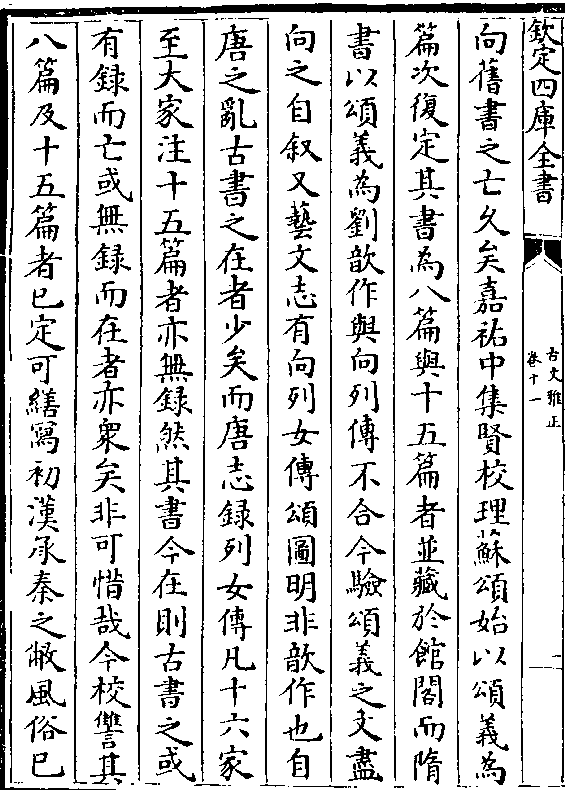 欽定四庫全書
古文雅正
卷十一
向舊書之亡久矣嘉祐中集賢校理蘇頌始以頌義為
篇次復定其書為八篇與十五篇者並藏於館閣而隋
書以頌義為劉歆作與向列傳不合今驗頌義之文盡
向之自叙又藝文志有向列女傳頌圖明非歆作也自
唐之亂古書之在者少矣而唐志録列女傳凡十六家
至大家注十五篇者亦無録然其書今在則古書之或
有録而亡或無録而在者亦衆矣非可惜哉今校讐其
八篇及十五篇者已定可繕寫初漢承秦之敝風俗已